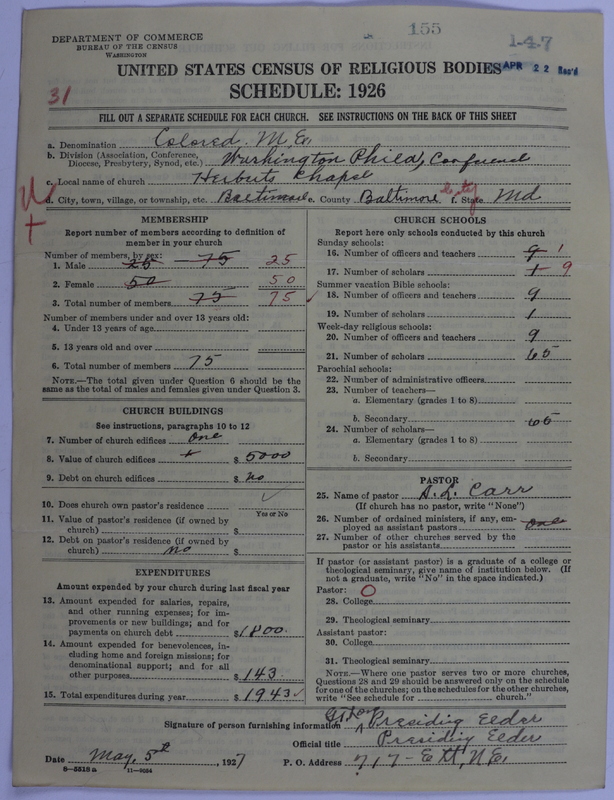 DEPARTMENT OF COMMERCE
BUREAU OF THE CENSUS
WASHINGTON
155
1-4-7
APR 22 Rec'd
31
UNITED STATES CENSUS OF RELIGIOUS BODIES
SCHEDULE: 1926
FILL OUT A SEPARATE SCHEDULE FOR EACH CHURCH. SEE INSTRUCTIONS ON THE BACK OF THIS SHEET
a. Denomination Colored M.E.
b. Division (Association, Conference, Diocese, Presbytery, Synod, etc.) Washington Phila, Conference
c. Local name of church Herberts Chapel
d. City, town, village, or township, etc. Baltimore e. County Baltimore City f. State Md
MEMBERSHIP
Report number of members according to definition of
member in your church
Number of members, by sex:
1. Male 25 75 25
2. Female 50 50
3. Total number of members 75 75
Number of members under and over 13 years old:
4. Under 13 years of age
5. 13 years old and over
6. Total number of members 75
NOTE.—The total given under Question 6 should be the
same as the total of males and females given under Question 3.
CHURCH BUILDINGS
See instructions, paragraphs 10 to 12
7. Number of church edifices one
8. Value of church edifices $ 5000
9. Debt on church edifices $ No
10. Does church own pastor's residence?
Yes or No
11. Value of pastor's residence (if owned by
church) $
12. Debt on pastor's residence (if owned by
church) no $
EXPENDITURES
Amount expended by your church during last fiscal year
13. Amount expended for salaries, repairs,
and other running expenses; for im-
provements or new buildings; and for
payments on church debt $1800.
14. Amount expended for benevolences, in-
cluding home and foreign missions; for
denominational support; and for all
other purposes $ 143.
15. Total expenditures during year $ 1943
CHURCH SCHOOLS
Report here only schools conducted by this church
Sunday schools:
16. Number of officers and teachers 9 1
17. Number of scholars 1 9
Summer vacation Bible schools:
18. Number of officers and teachers 9
19. Number of scholars 1
Week-day religious schools:
20. Number of officers and teachers 9
21. Number of scholars 65
Parochial schools:
22. Number of administrative officers
23. Number of teachers—
a. Elementary (grades 1 to 8)
b. Secondary 65
24. Number of scholars—
a. Elementary (grades 1 to 8)
b. Secondary
PASTOR
25. Name of pastor A. L. Carr
(If church has no pastor, write "None")
26. Number of ordained ministers, if any, em-
ployed as assistant pastors one
27. Number of other churches served by the
pastor or his assistants
If pastor (or assistant pastor) is a graduate of a college or
theological seminary, give name of institution below. (If
not a graduate, write "No" in the space indicated.)
Pastor: O
28. College
29. Theological seminary
Assistant pastor:
30. College
31. Theological seminary
NOTE.—Where one pastor serves two or more churches,
Questions 28 and 29 should be answered only on the schedule
for one of the churches; on the schedules for the other churches,
write "See schedule for church."
Signature of person furnishing information Presiding Eelder
Official title Presiding Eelder
Date May, 5th, 1927 P. O. Address 717- E st, N.E.
8-5518a 11-8054